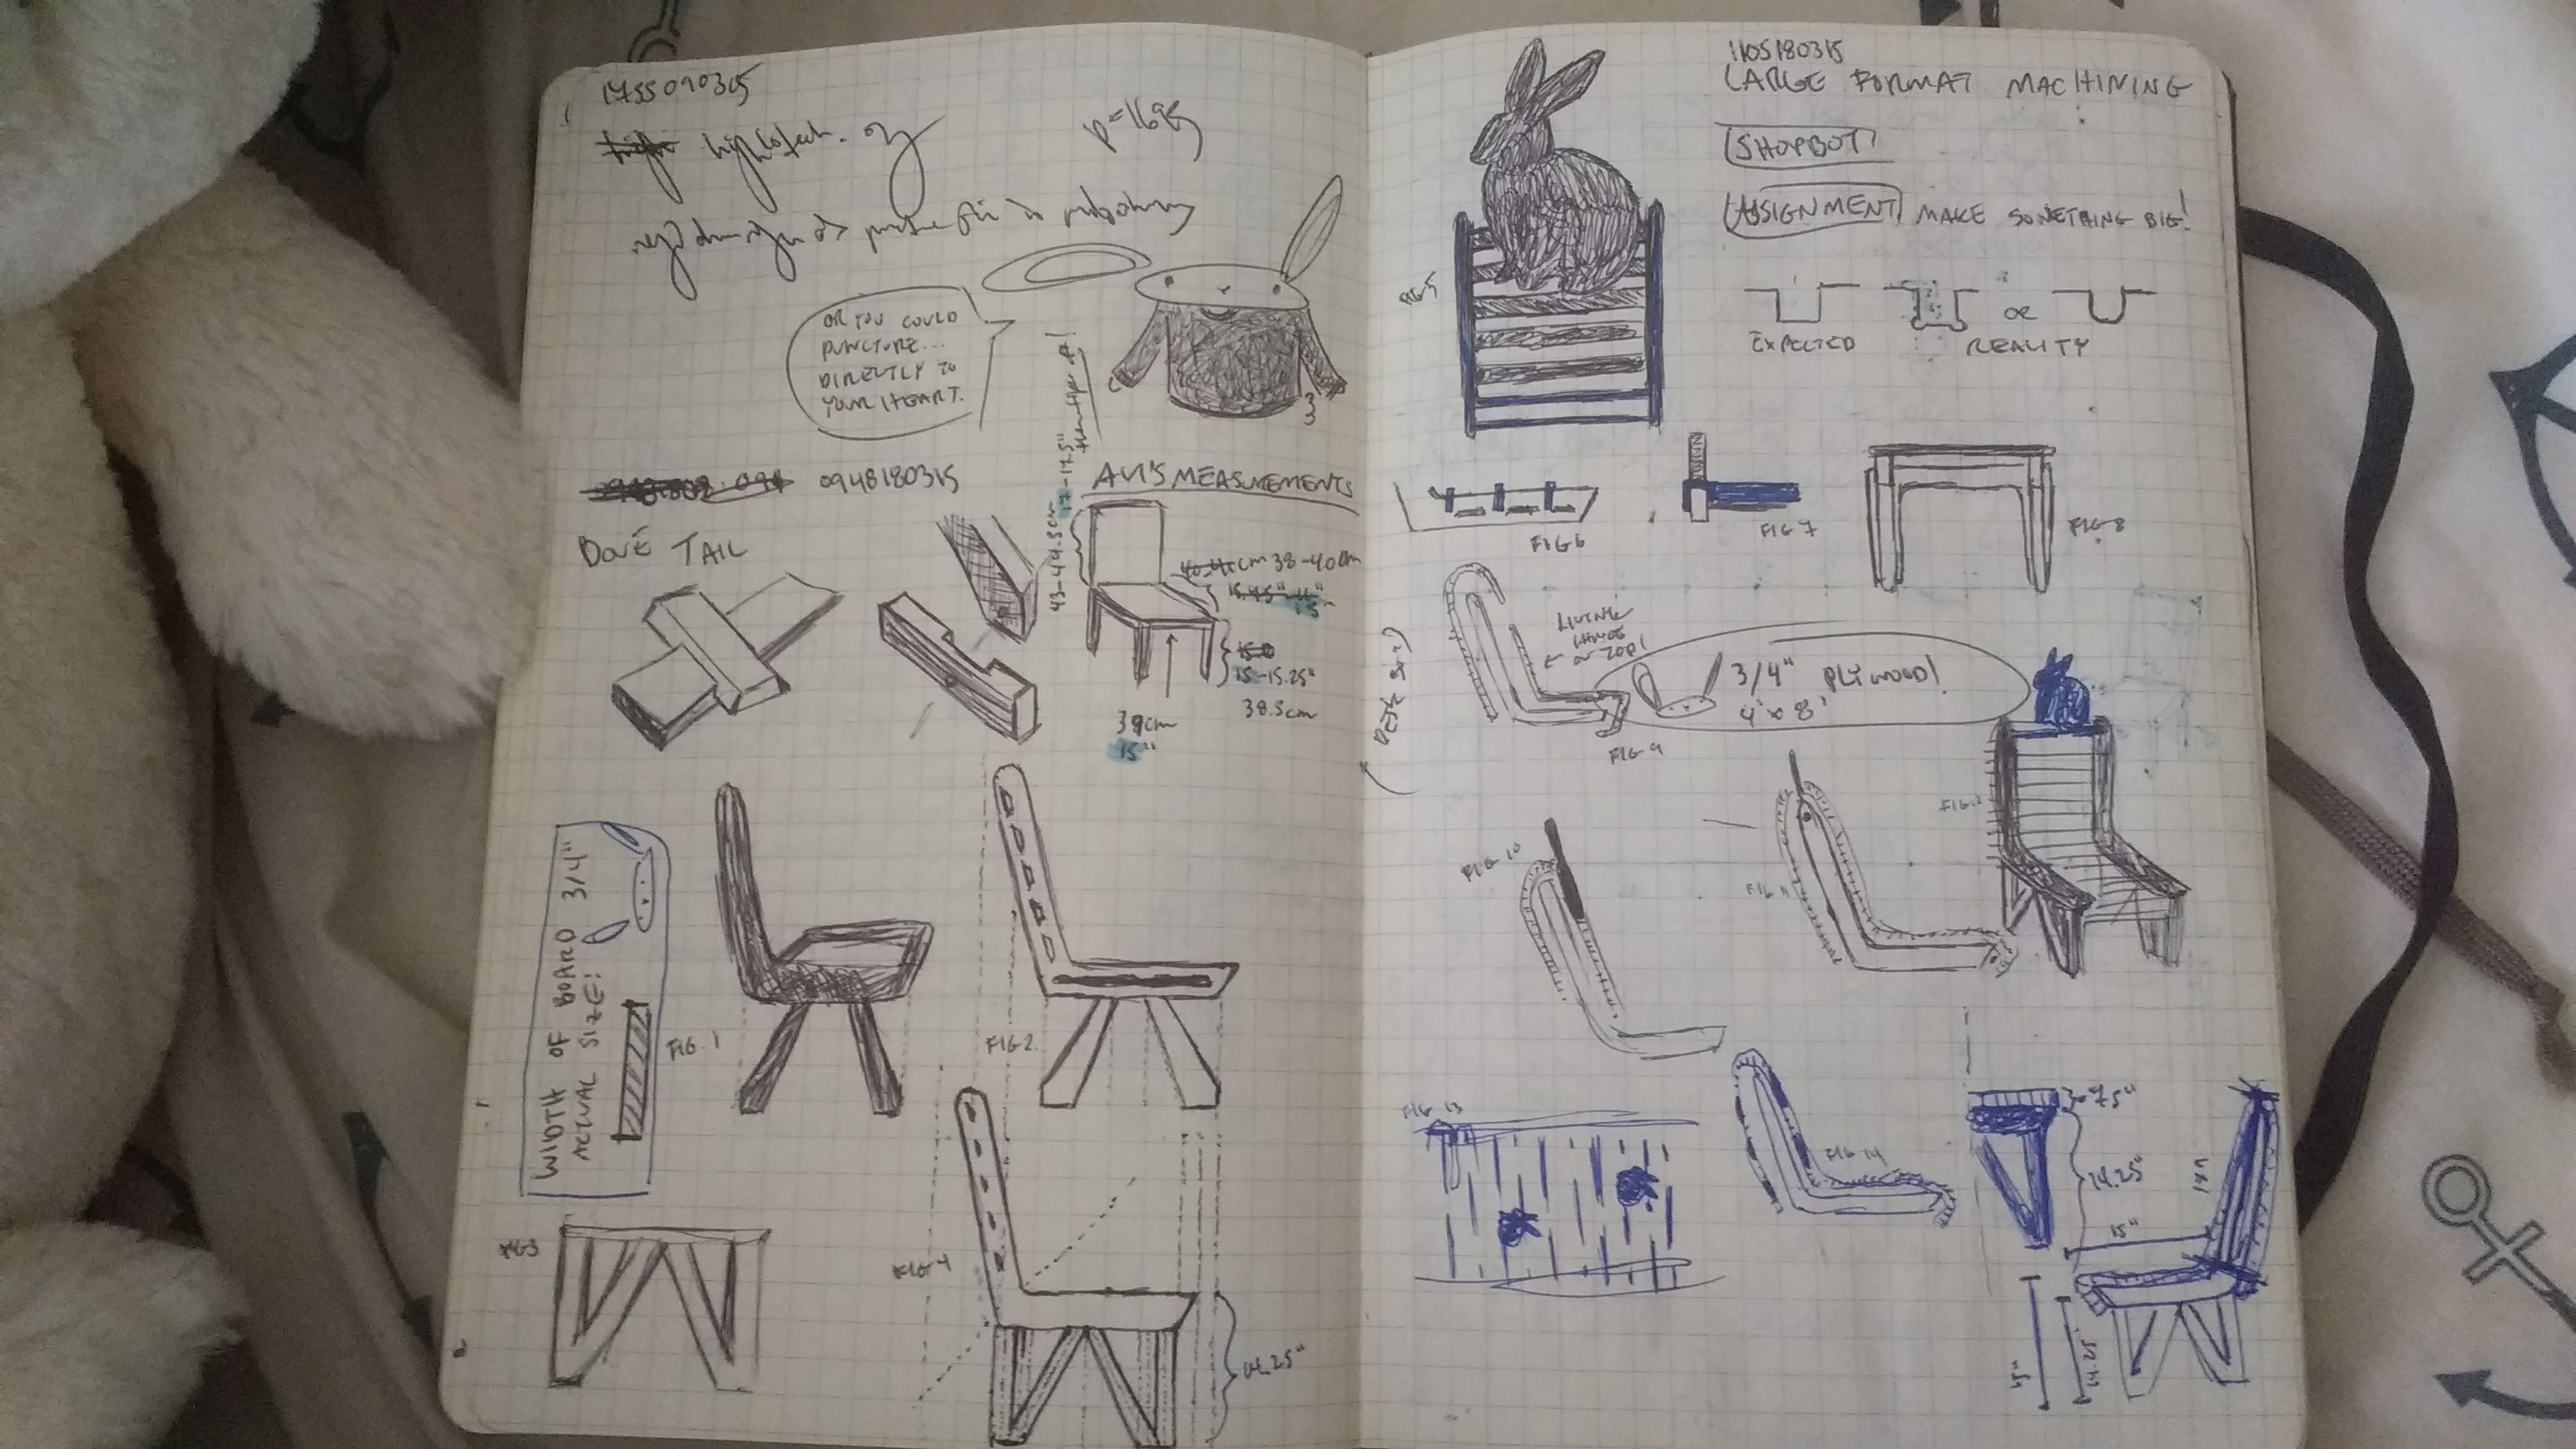 1755090315
P=169
OR YOU COULD
PUNCTURE...
DIRECTLY TO
YOUR HEART.
0948180315
AVI'S MEASUREMENTS
43-44.5cm
17-17.5"
38-40cm
15-15.25"
38.5cm
39cm
15"
DOVE TAIL
WIDTH OF BOARD 3/4"
ACTUAL SIZE!
FIG. 1
FIG 2
FIG 3
FIG 4
14.25"
1105180315
LARGE FORMAT MACHINING
SHOPBOT
ASSIGNMENT MAKE SOMETHING BIG!
EXPECTED
OR
REALITY
FIG 5
FIG 6
FIG 7
FIG 8
LIVING
HINGE
ON TOP!
3/4" PLYWOOD!
4' x 8'
FIG 9
FIG 10
FIG 11
FIG 13
FIG 14
14.25"
15"
15"
14.25